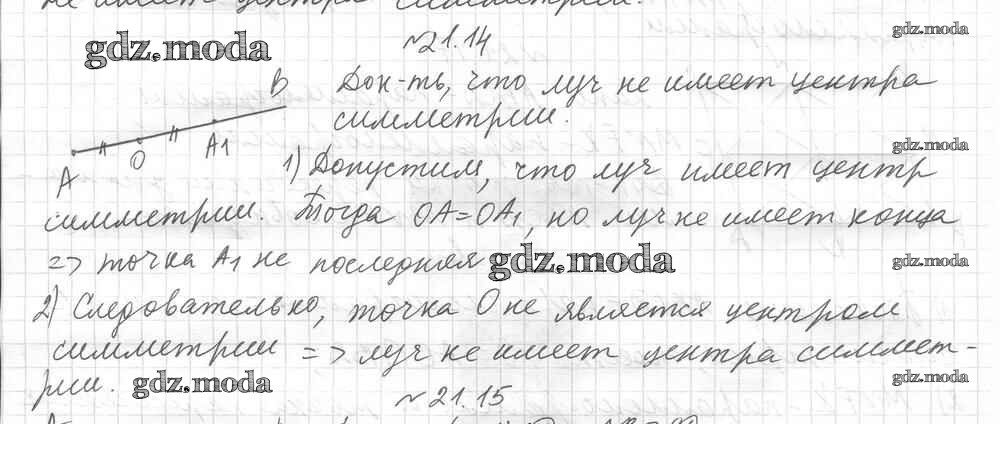 не имеет центра симметрии.
№21.14
gdz.moda
gdz.moda
В Док-ть, что луч не имеет центра
симметрии.
А О А1
gdz.moda
1) Допустим, что луч имеет центр
симметрии. Тогда ОА=ОА1, но луч не имеет конца
=> точка А1 не последняя
gdz.moda
gdz.moda
2) Следовательно, точка О не является центром
симметрии => луч не имеет центра симмет-
рии.
gdz.moda
gdz.moda
№21.15